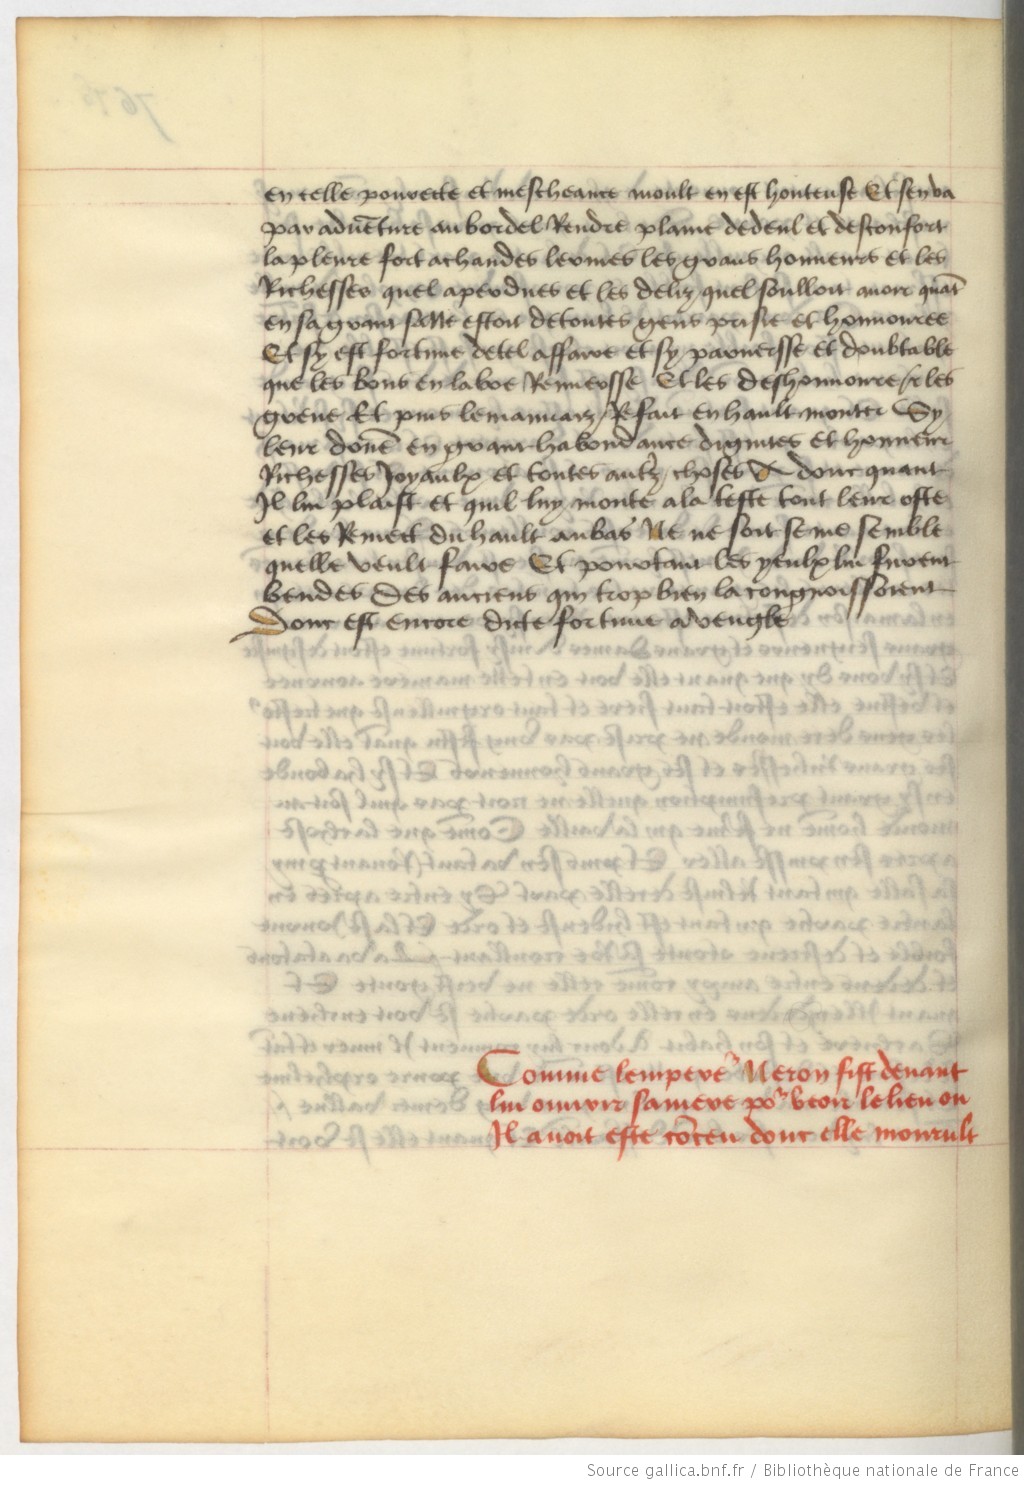 en telle povrette et mescheance moult en est honteuse Et sen va
par advẽture au bordel Rendre plaine de deul et desconfort
la pleure fort a chaudes lermes les grans honneurs et les
Richesses quel a perdues et les deliz quel soulloit avoir quãt
en sa grant salle estoit de toutes gens prisie et honnouree
Et sy est fortune de tel affaire et sy parverse et doubtable
que les bons en la boe Renverse Et les deshonnoure et les
greve Et puis le mauvaiz Refait en hault monter Sy
leur dõne en grant habondance dignites et honneur
Richesses Joyaulx et toutes autrz choses & donc quant
Il lui plaist et quil luy monte a la teste tout leur oste
et les Remect du hault au bas Ne ne soit se me semble
quelle veult faire Et pourtant les yeulx lui furent
bendes Des anciens qui trop bien la congnoissoient
Donc est encore dicte fortune aveugle
Comme lempere~ Neron fist devant
lui ouvrir sa mere po~ veoir le lieu ou
Il avoit este cõceu donc elle mourult
Source gallica.bnf.fr / Bibliothèque nationale de France